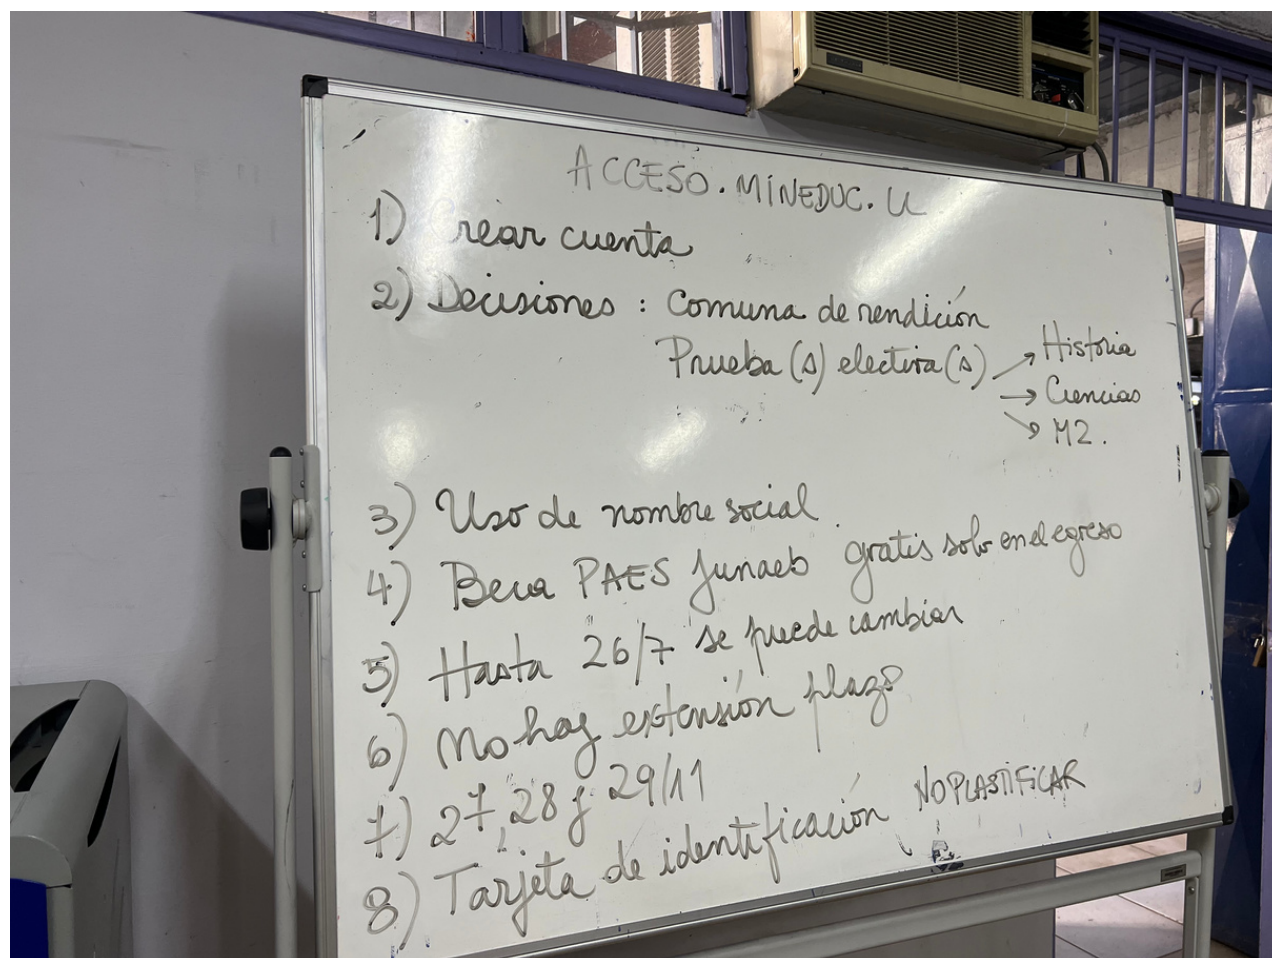 ACCESO.MINEDUC.CL
1) Crear cuenta
2) Decisiones : Comuna de rendición
Prueba (s) electiva (s) → Historia
→ Ciencias
→ M2.
3) Uso de nombre social.
4) Beca PAES Junaeb gratis solo en el egreso
5) Hasta 26/7 se puede cambiar
6) No hay extensión plazo
7) 27, 28 y 29/11
8) Tarjeta de identificación NO PLASTIFICAR